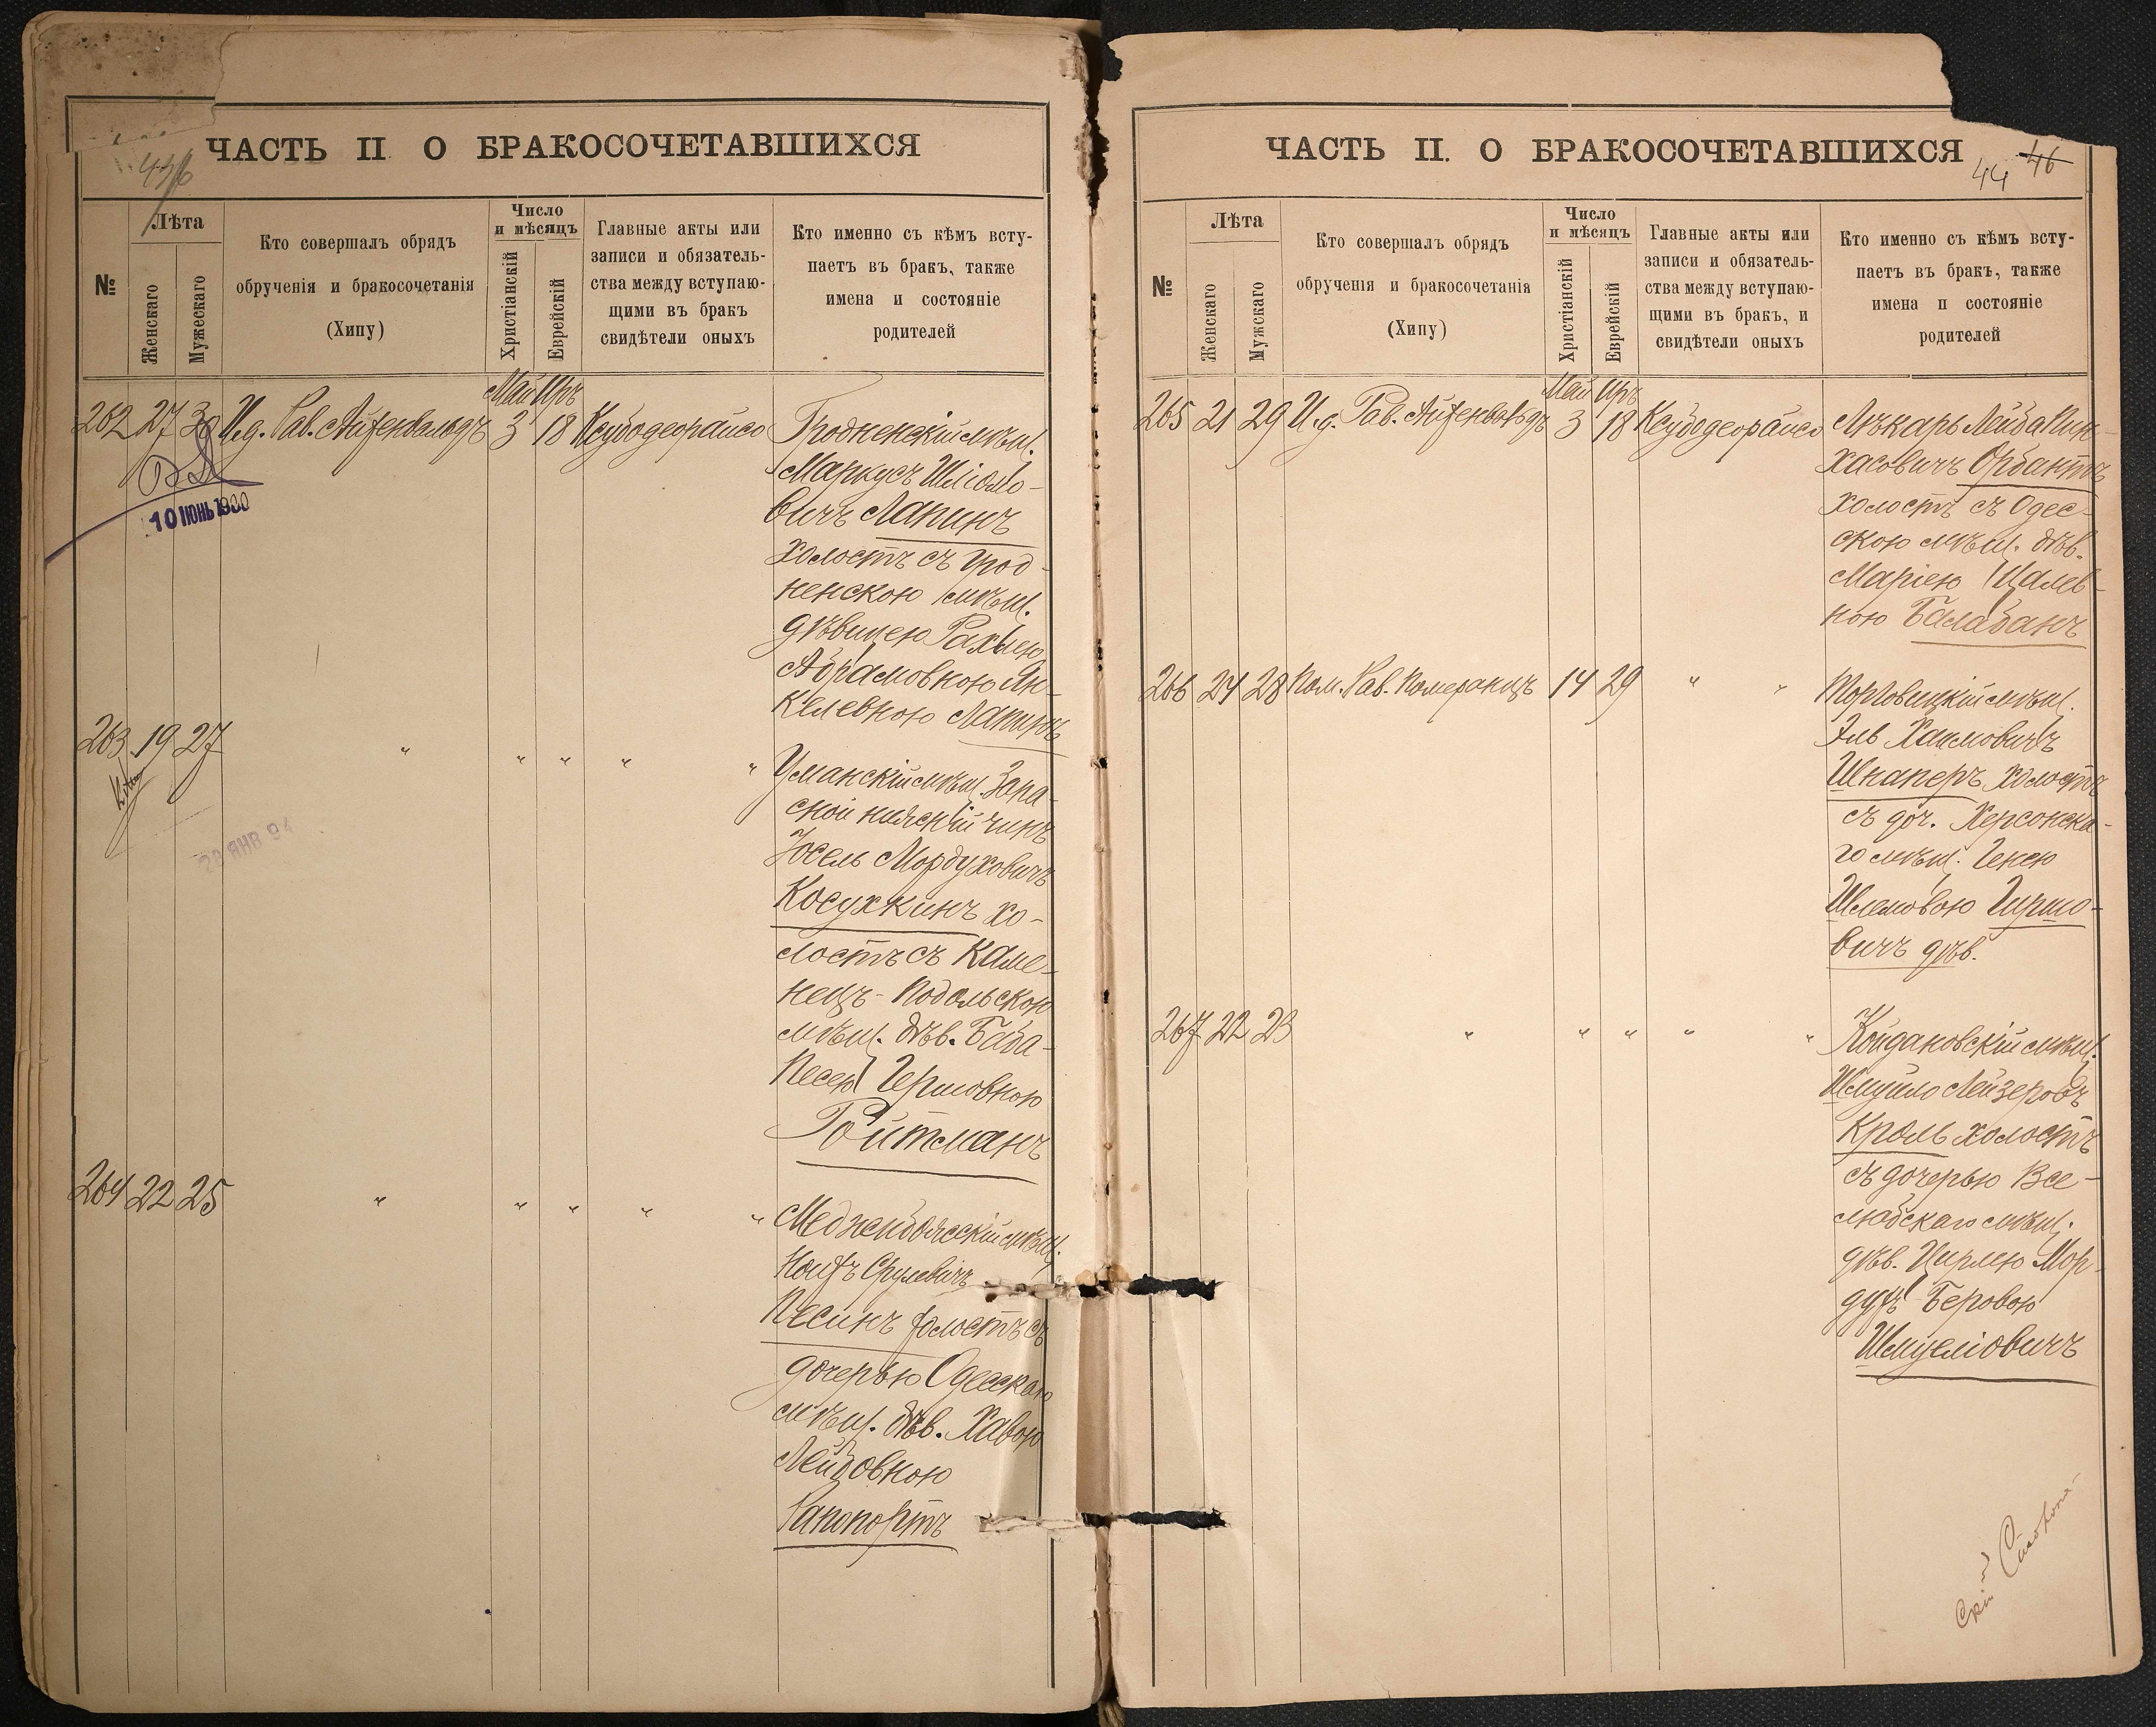 ЧАСТЬ II О БРАКОСОЧЕТАВШИХСЯ
№
Лѣта
Женскаго
Мужескаго
Кто совершалъ обрядъ
обрученія и бракосочетанія
(Хипу)
Число
и мѣсяцъ
Христіанскій
Еврейскій
Главные акты или
записи и обязатель-
ства между вступаю-
щими въ бракъ
свидѣтели оныхъ
Кто именно съ кѣмъ всту-
паетъ въ бракъ, также
имена и состояніе
родителей
Май Иръ
262 27 30 И.д. Рав. Айзенвальдъ 3 18 Ксубодеорайсо Гродненскій мѣщ.
Маркусъ Шліомо-
вичъ Лапинъ
холостъ съ Грод-
ненскою мѣщ.
дѣвицею Рахлею
Абрамовною Ян-
келевною Лапинъ
10 ІЮНЬ 1900
263 19 27 " " " " " Уманскій мѣщ. Запа-
сной нижній чинъ
Іосель Мордуховичъ
Косухкинъ хо-
лостъ съ Каме-
нецъ-Подольскою
мѣщ. дѣв. Баба-
Песею Гершовною
Ройтманъ
28 ЯНВ 94
264 22 25 " " " " " Меджибожскій мѣщ.
Срулевичъ
Песинъ холостъ съ
дочерью Одесскаго
мѣщ. дѣв. Хавою
Лейбовною
Рапопортъ
ЧАСТЬ II. О БРАКОСОЧЕТАВШИХСЯ
44 46
№
Лѣта
Женскаго
Мужскаго
Кто совершалъ обрядъ
обрученія и бракосочетанія
(Хипу)
Число
и мѣсяцъ
Христіанскій
Еврейскій
Главные акты или
записи и обязатель-
ства между вступаю-
щими въ бракъ, и
свидѣтели оныхъ
Кто именно съ кѣмъ всту-
паетъ въ бракъ, также
имена п состояніе
родителей
Май Иръ
265 21 29 И.д. Рав. Айзенвальдъ 3 18 Ксубодеорайсо Лѣкарь Лейба Пин-
хасовичъ Орбантъ
холостъ съ Одес-
скою мѣщ. дѣв.
Маріею Шалев-
ною Балабанъ
266 24 28 Пом. Рав. Померанцъ 14 29 " " Торговицкій мѣщ.
Эль Хаимовичъ
Шнаперъ холостъ
съ доч. Херсонска-
го мѣщ. Генею
Шлемовою Гиршо-
вичъ дѣв.
267 22 23 " " " " " Койдановскій мѣщ.
Шмуйло Лейзеровъ
Кроль холостъ
съ дочерью Все-
любскаго мѣщ.
дѣв. Цирлею Мор-
духъ Беровою
Шмуеліовичъ